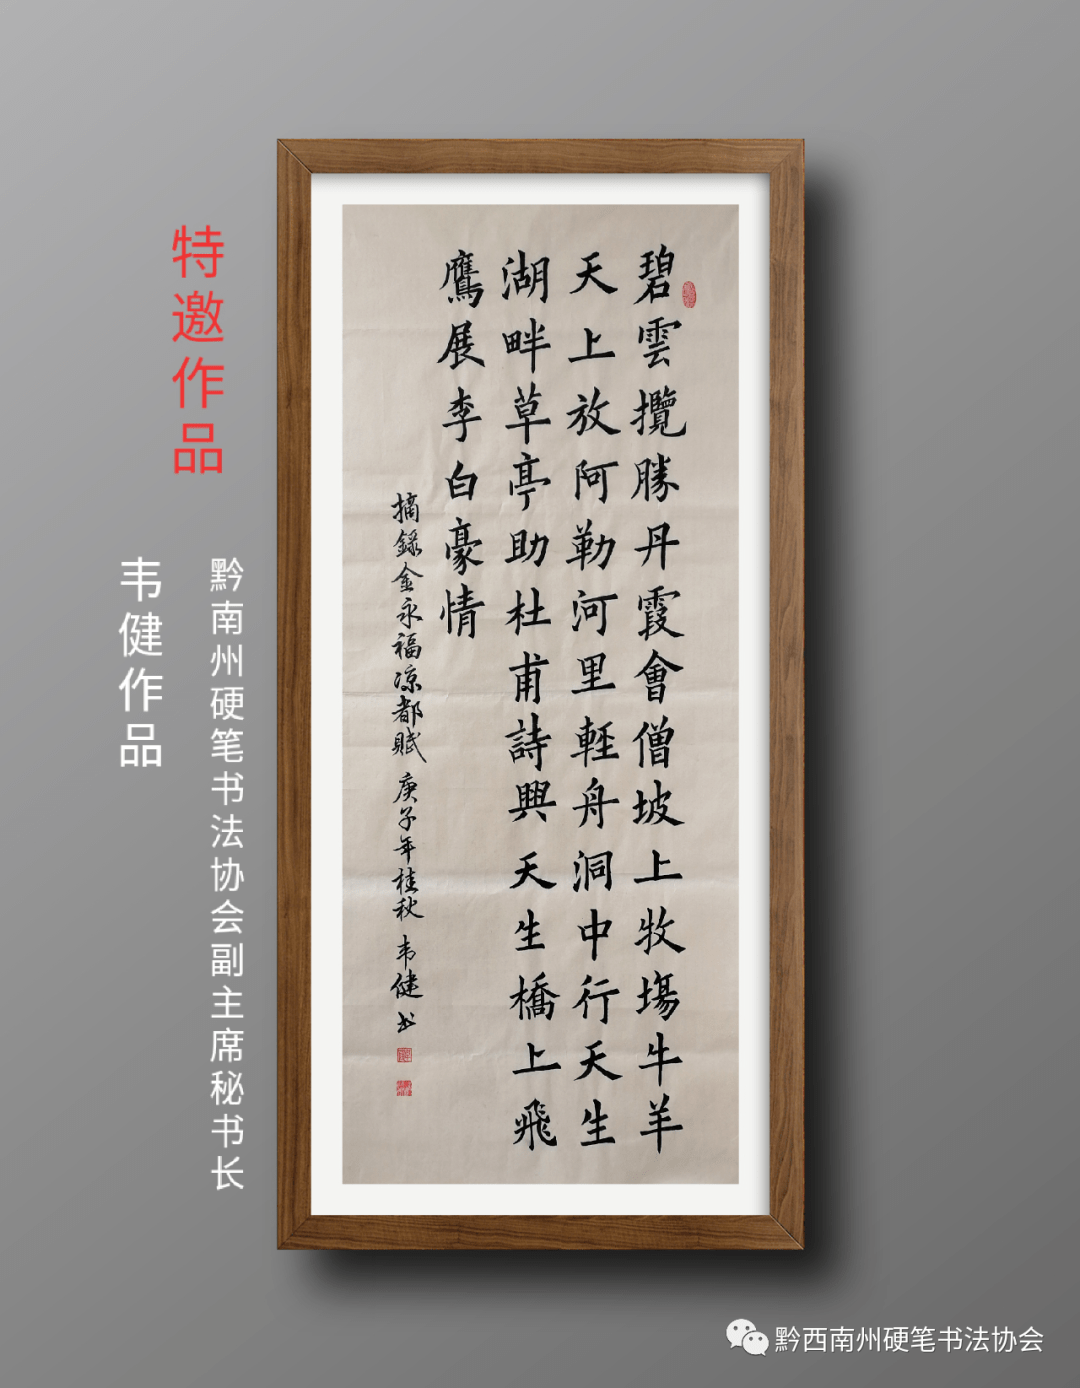 特邀作品
黔南州硬笔书法协会副主席秘书长
韦健作品
碧雲攬勝丹霞會僧坡上牧場牛羊
天上放阿勒河里輕舟洞中行天生
湖畔草亭助杜甫詩興天生橋上飛
鷹展李白豪情
摘録金永福凉都賦 庚子年桂秋 韦健书
黔西南州硬笔书法协会